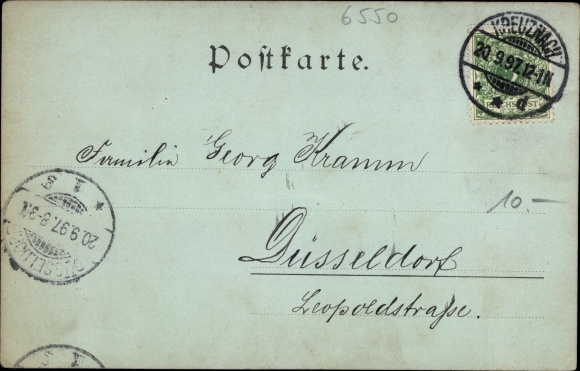 6550
KREUZNACH
20.9.97.12-1N.
* * d
REICHSPOST
Postkarte.
Familie Georg Kramm
10.-
20.9.97.8-9N.
Düsseldorf
Leopoldstraße.